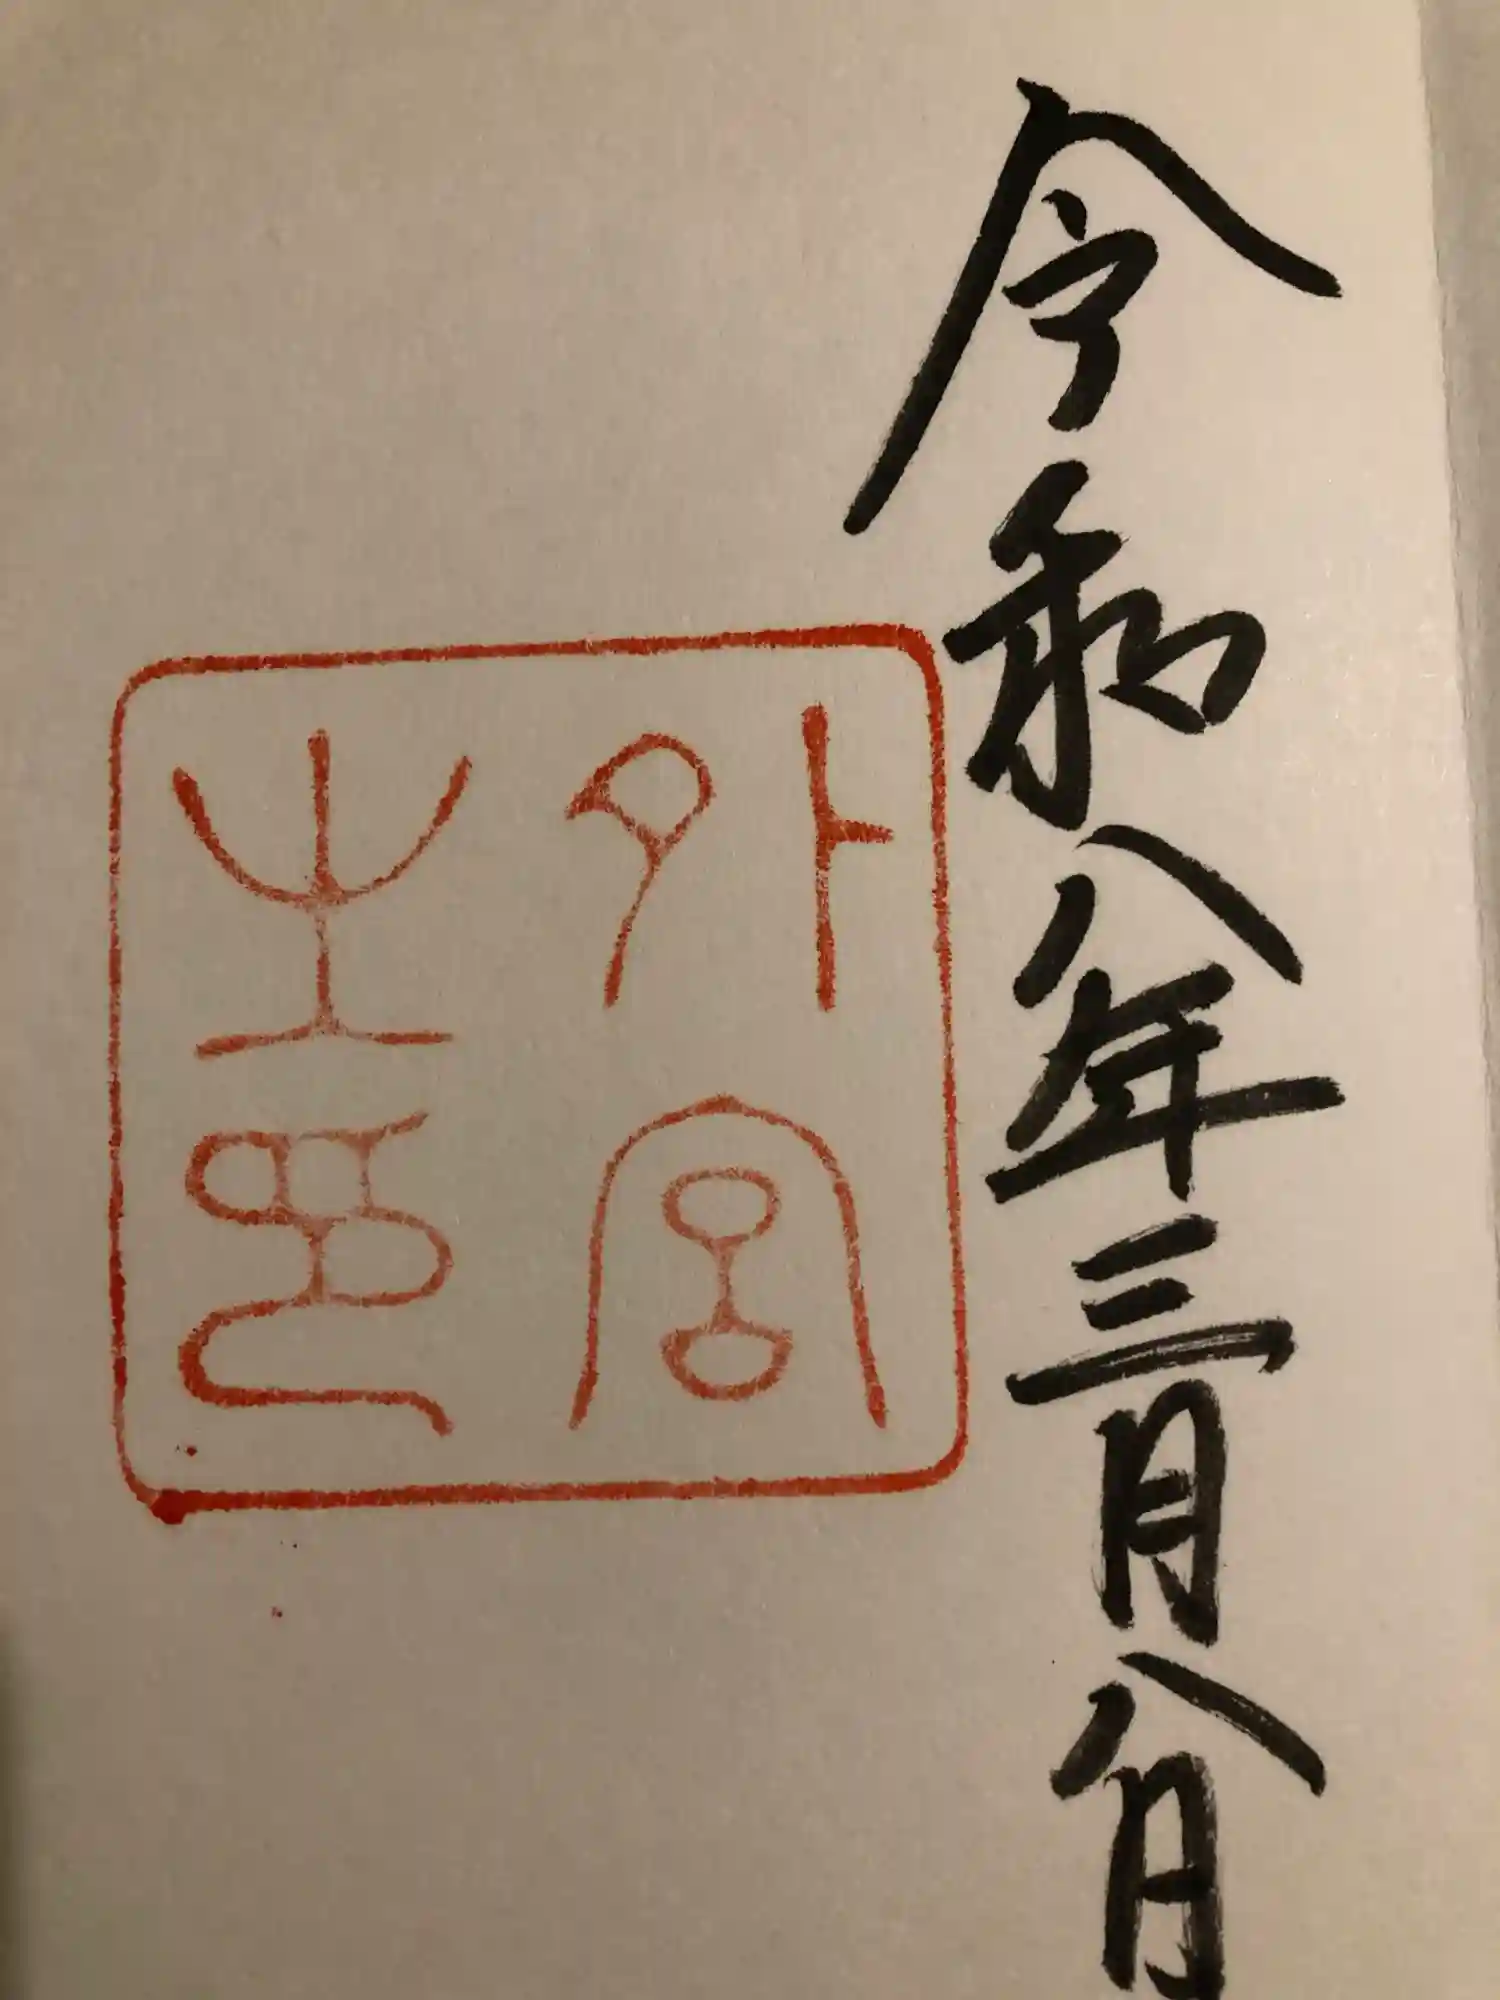 令和八年三月八日
外宮
之印